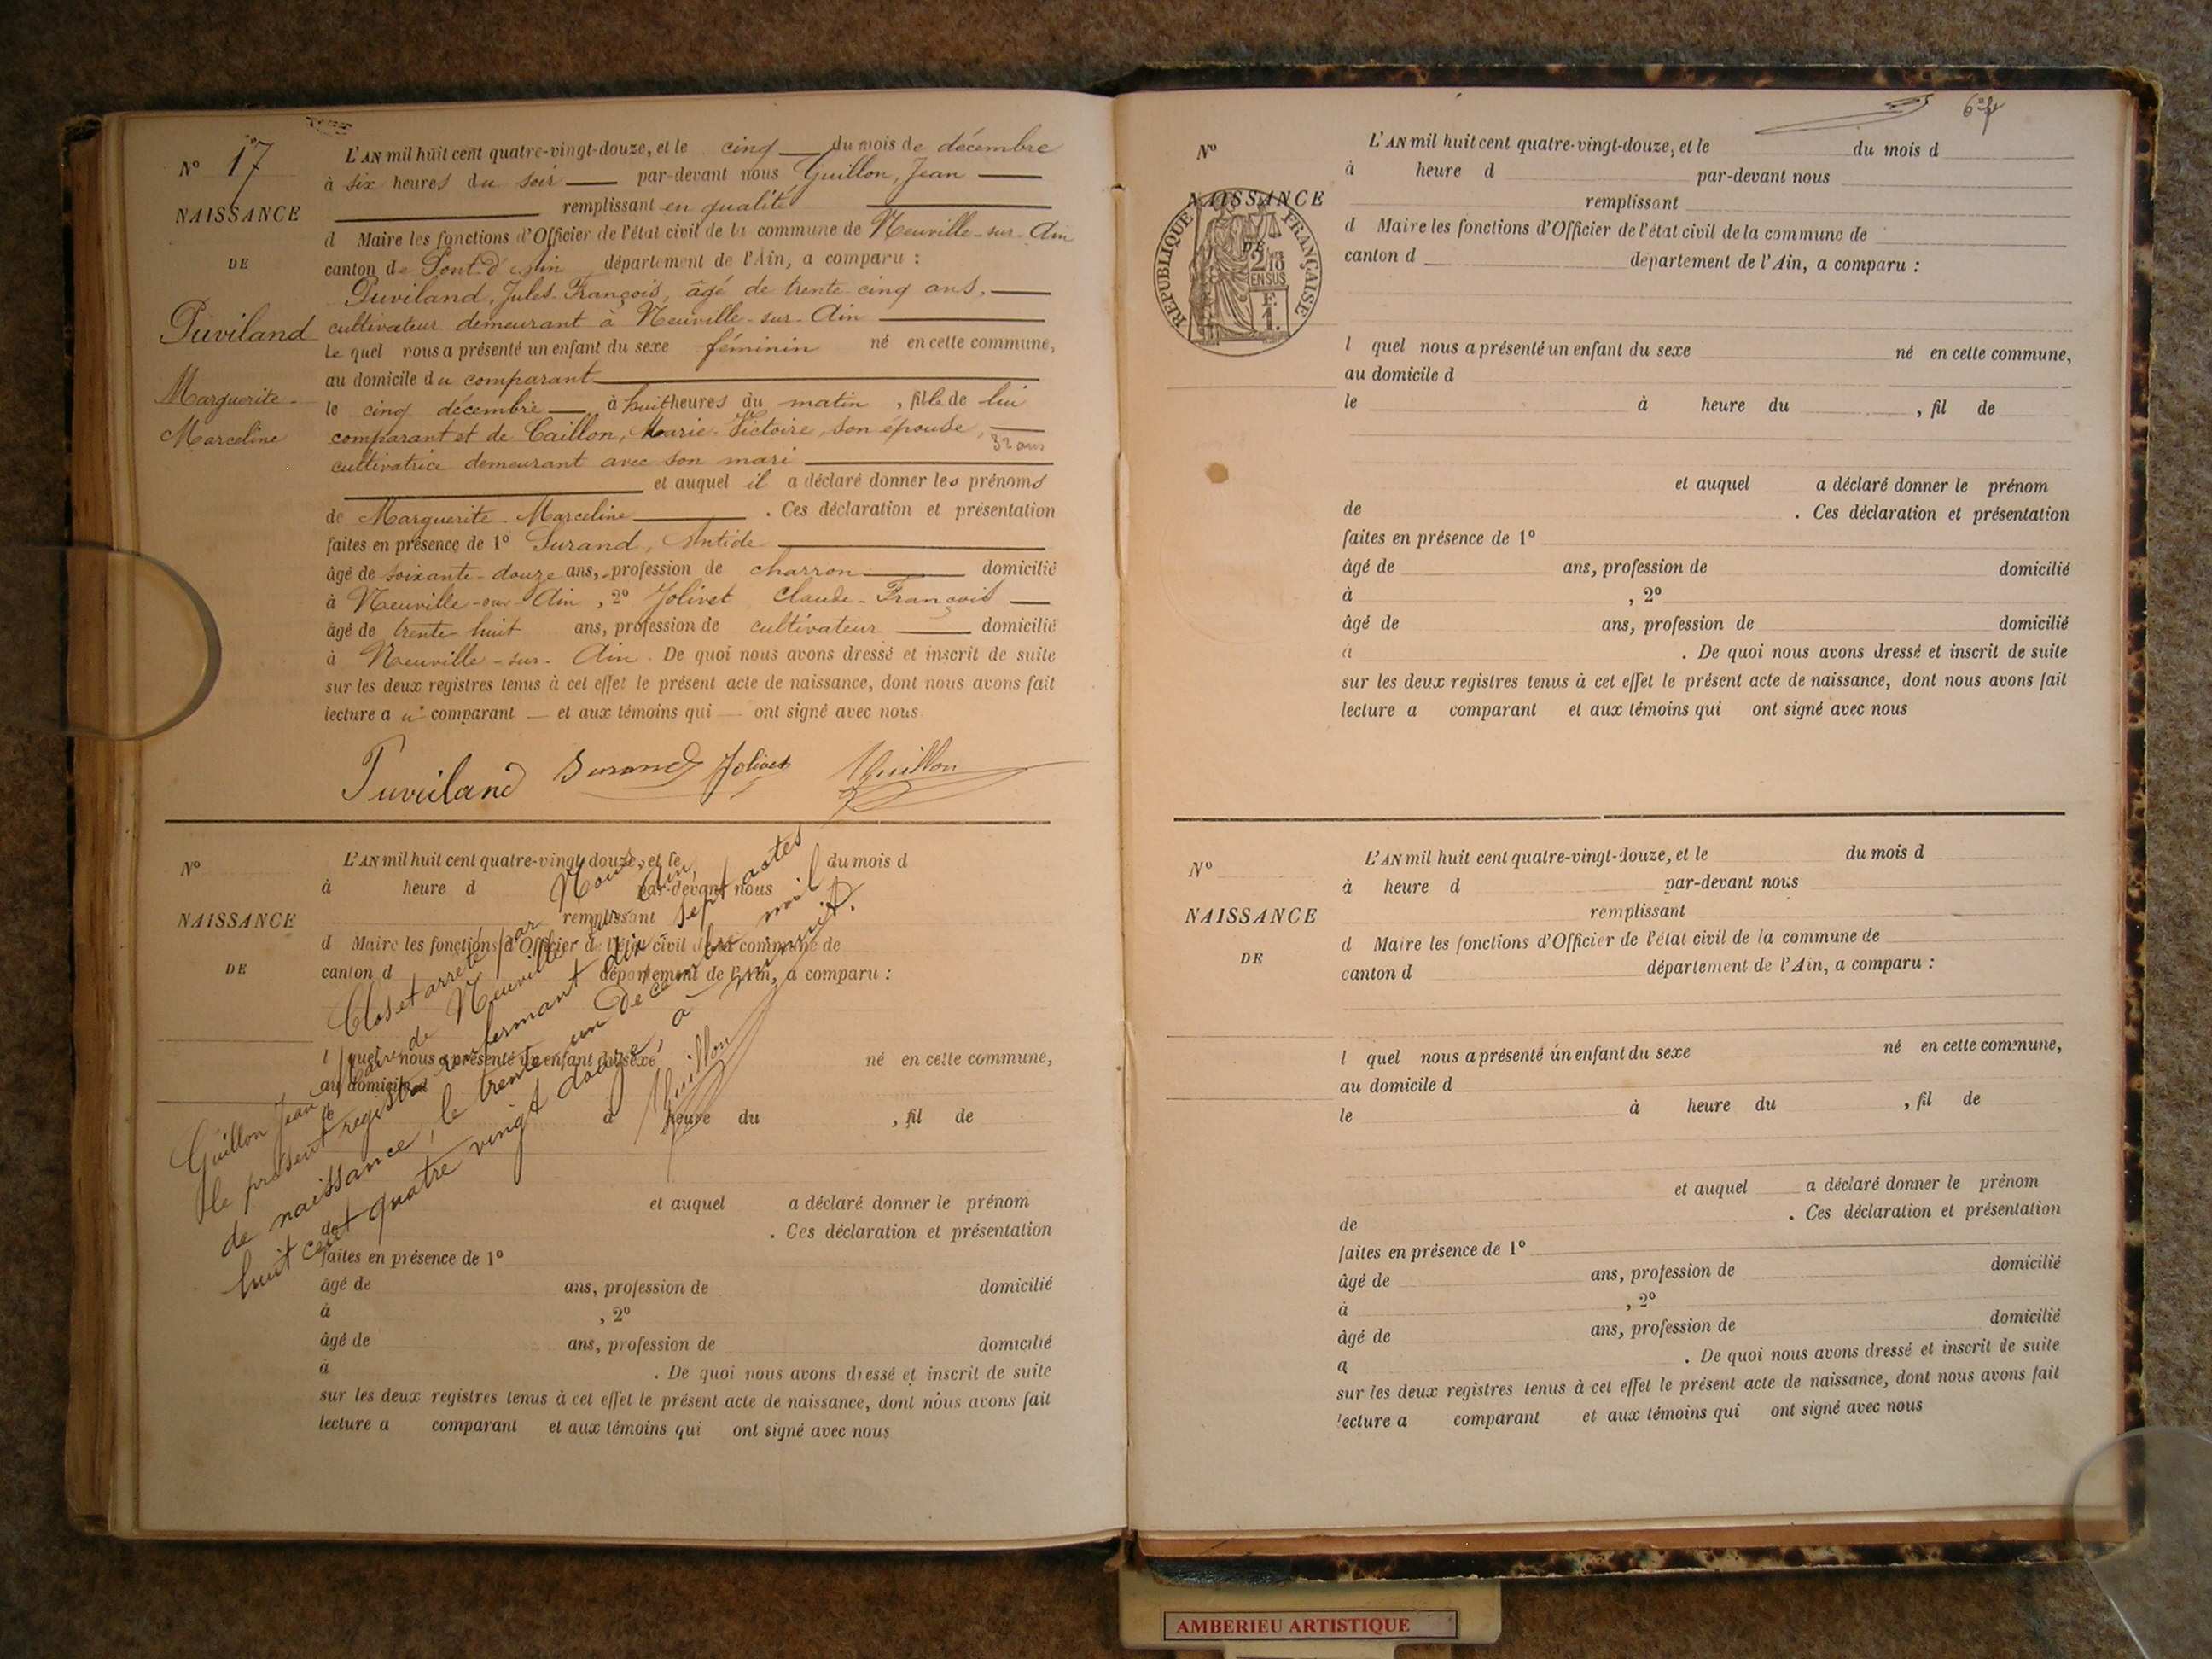 Nº 17
NAISSANCE
DE
Puviland
Marguerite-
Marceline
L'AN mil huit cent quatre-vingt-douze, et le cinq du mois de décembre
à six heures du soir par-devant nous Guillon, Jean
remplissant en qualité
d Maire les fonctions d'Officier de l'état civil de la commune de Neuville-sur-Ain
canton de Pont-d'Ain département de l'Ain, a comparu :
Puviland, Jules-François, âgé de trente cinq ans,
cultivateur demeurant à Neuville-sur-Ain
le quel nous a présenté un enfant du sexe féminin né en cette commune,
au domicile du comparant
le cinq décembre à huit heures du matin, fille de lui
comparant et de Caillon, Marie-Victoire, son épouse,
32 ans
cultivatrice demeurant avec son mari
et auquel il a déclaré donner les prénoms
de Marguerite-Marceline . Ces déclaration et présentation
faites en présence de 1º Durand, Antide
âgé de soixante-douze ans, profession de charron domicilié
à Neuville-sur-Ain, 2º Jolivet Claude-François
âgé de trente-huit ans, profession de cultivateur domicilié
à Neuville-sur-Ain. De quoi nous avons dressé et inscrit de suite
sur les deux registres tenus à cet effet le présent acte de naissance, dont nous avons fait
lecture au comparant et aux témoins qui ont signé avec nous
Puviland Durand Jolivet Guillon
Nº
NAISSANCE
DE
L'AN mil huit cent quatre-vingt-douze, et le du mois d
à heure d par-devant nous
remplissant
d Maire les fonctions d'Officier de l'état civil de la commune de
canton d département de l'Ain, a comparu :
l quel nous a présenté un enfant du sexe né en cette commune,
au domicile d
le à heure du , fil de
et auquel a déclaré donner le prénom
de . Ces déclaration et présentation
faites en présence de 1º
âgé de ans, profession de domicilié
à , 2º
âgé de ans, profession de domicilié
à . De quoi nous avons dressé et inscrit de suite
sur les deux registres tenus à cet effet le présent acte de naissance, dont nous avons fait
lecture a comparant et aux témoins qui ont signé avec nous
Clos et arrêté par Nous
Guillon Jean Maire de Neuville sur Ain,
le présent registre renfermant dix sept actes
de naissance, le trente un Décembre mil
huit cent quatre vingt douze, à minuit.
Guillon
Nº
NAISSANCE
DE
RÉPUBLIQUE FRANÇAISE
2/10
EN SUS
F.
1.
L'AN mil huit cent quatre-vingt-douze, et le du mois d
à heure d par-devant nous
remplissant
d Maire les fonctions d'Officier de l'état civil de la commune de
canton d département de l'Ain, a comparu :
l quel nous a présenté un enfant du sexe né en cette commune,
au domicile d
le à heure du , fil de
et auquel a déclaré donner le prénom
de . Ces déclaration et présentation
faites en présence de 1º
âgé de ans, profession de domicilié
à , 2º
âgé de ans, profession de domicilié
à . De quoi nous avons dressé et inscrit de suite
sur les deux registres tenus à cet effet le présent acte de naissance, dont nous avons fait
lecture a comparant et aux témoins qui ont signé avec nous
Nº
NAISSANCE
DE
L'AN mil huit cent quatre-vingt-douze, et le du mois d
à heure d par-devant nous
remplissant
d Maire les fonctions d'Officier de l'état civil de la commune de
canton d département de l'Ain, a comparu :
l quel nous a présenté un enfant du sexe né en cette commune,
au domicile d
le à heure du , fil de
et auquel a déclaré donner le prénom
de . Ces déclaration et présentation
faites en présence de 1º
âgé de ans, profession de domicilié
à , 2º
âgé de ans, profession de domicilié
a . De quoi nous avons dressé et inscrit de suite
sur les deux registres tenus à cet effet le présent acte de naissance, dont nous avons fait
lecture a comparant et aux témoins qui ont signé avec nous
AMBERIEU ARTISTIQUE